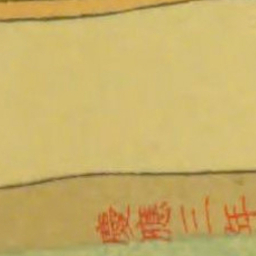 慶應三年